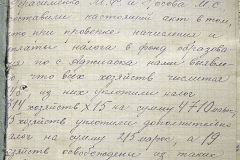 Герасименко М.Ф. и Гросова М.С.
составили настоящий акт в том,
что при проверке начисления и
уплаты налога в фонд образова
ния по с
нами выявле
что всех хозяйств числится
из них уплотили налог
314 хозяйств х 15 на сумму 4710
5 хозяйств уплотили дополнительно
налог на сумму 215 марок, а 19
хозяйств освобождены из таких